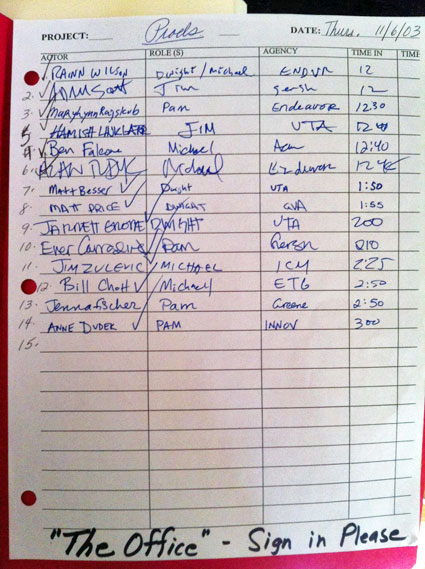 PROJECT: Prods DATE: Thurs. 11/6/03
ACTOR ROLE (S) AGENCY TIME IN TIME
RAINN WILSON Dwight/Michael ENDVR 12
2. ADAM SCOTT Jim Gersh 12
3. MaryLynn Rajskub Pam Endeavor 1230
5 HAMISH LINKLATER JIM UTA
Ben Falcone Michael 12:40
6. ALAN Michael Endeavor
7. Matt Besser Dwight UTA 1:50
8. MATT PRICE DWIGHT GVA 1:55
9. DWIGHT UTA 200
10. Ever Carradine Pam Gersh 210
11. JIM ZULEVIC MICHAEL ICM 225
12. Bill Chott Michael ETG 2:50
13. Jenna fischer Pam Greene 2:50
14. ANNE DUDEK PAM INNOV 300
15.
"The Office" - Sign in Please